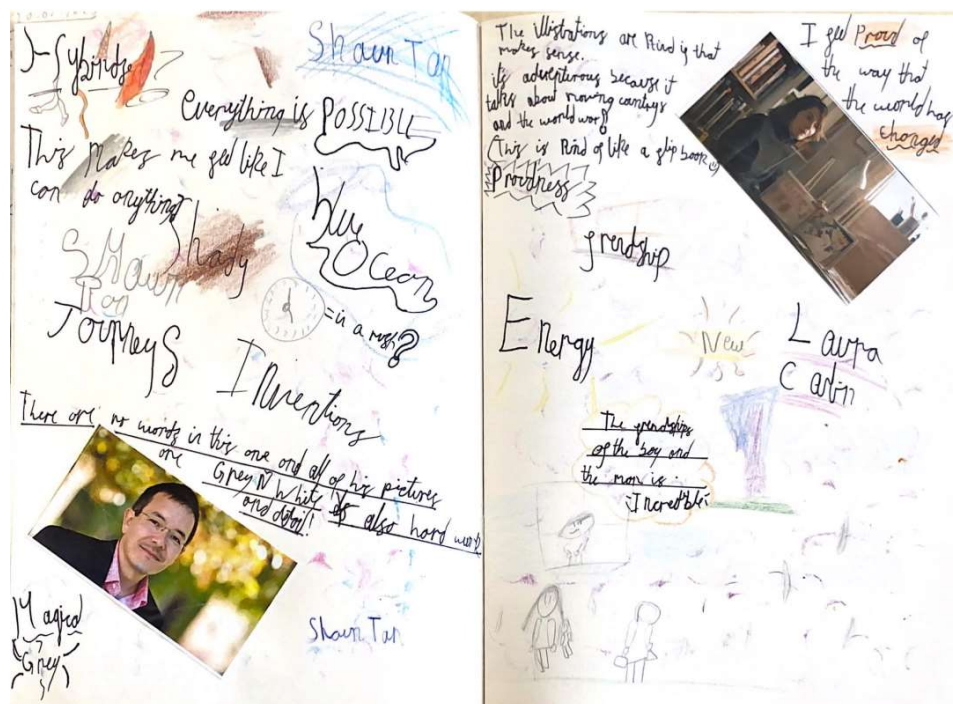 Hybirds
Shaun Tan
everything is POSSIBLE
This makes me feel like I
can do anything
Shady
blue
Ocean
Shawn
Tan
Journeys
= in a rush?
Inventions
There are no words in this one and all of his pictures
are Grey N White
is also hard work
and detail!
Shaun Tan
Magical
Grey
The illistrations are Kind of that
makes sense.
it's adventerous because it
talks about moving
and the world war
(This is Kind of like a flip book
Proudness
I feel Proud of
the way that
the world has
changed
frendship
Energy
New
Laura
Carlin
The frendships
of the boy and
the man is
Incredible